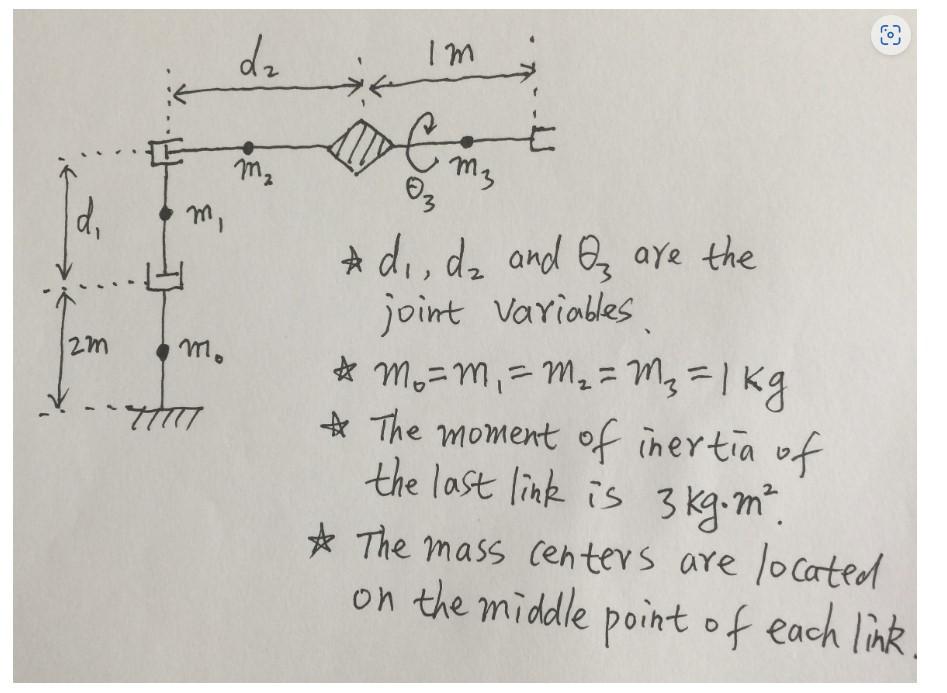 d₂
1 m
m₂
θ₃
m₃
d₁
m₁
2m
m₀
☆ d₁, d₂ and θ₃ are the
joint variables.
☆ m₀ = m₁ = m₂ = m₃ = 1 kg
☆ The moment of inertia of
the last link is 3 kg·m².
☆ The mass centers are located
on the middle point of each link.